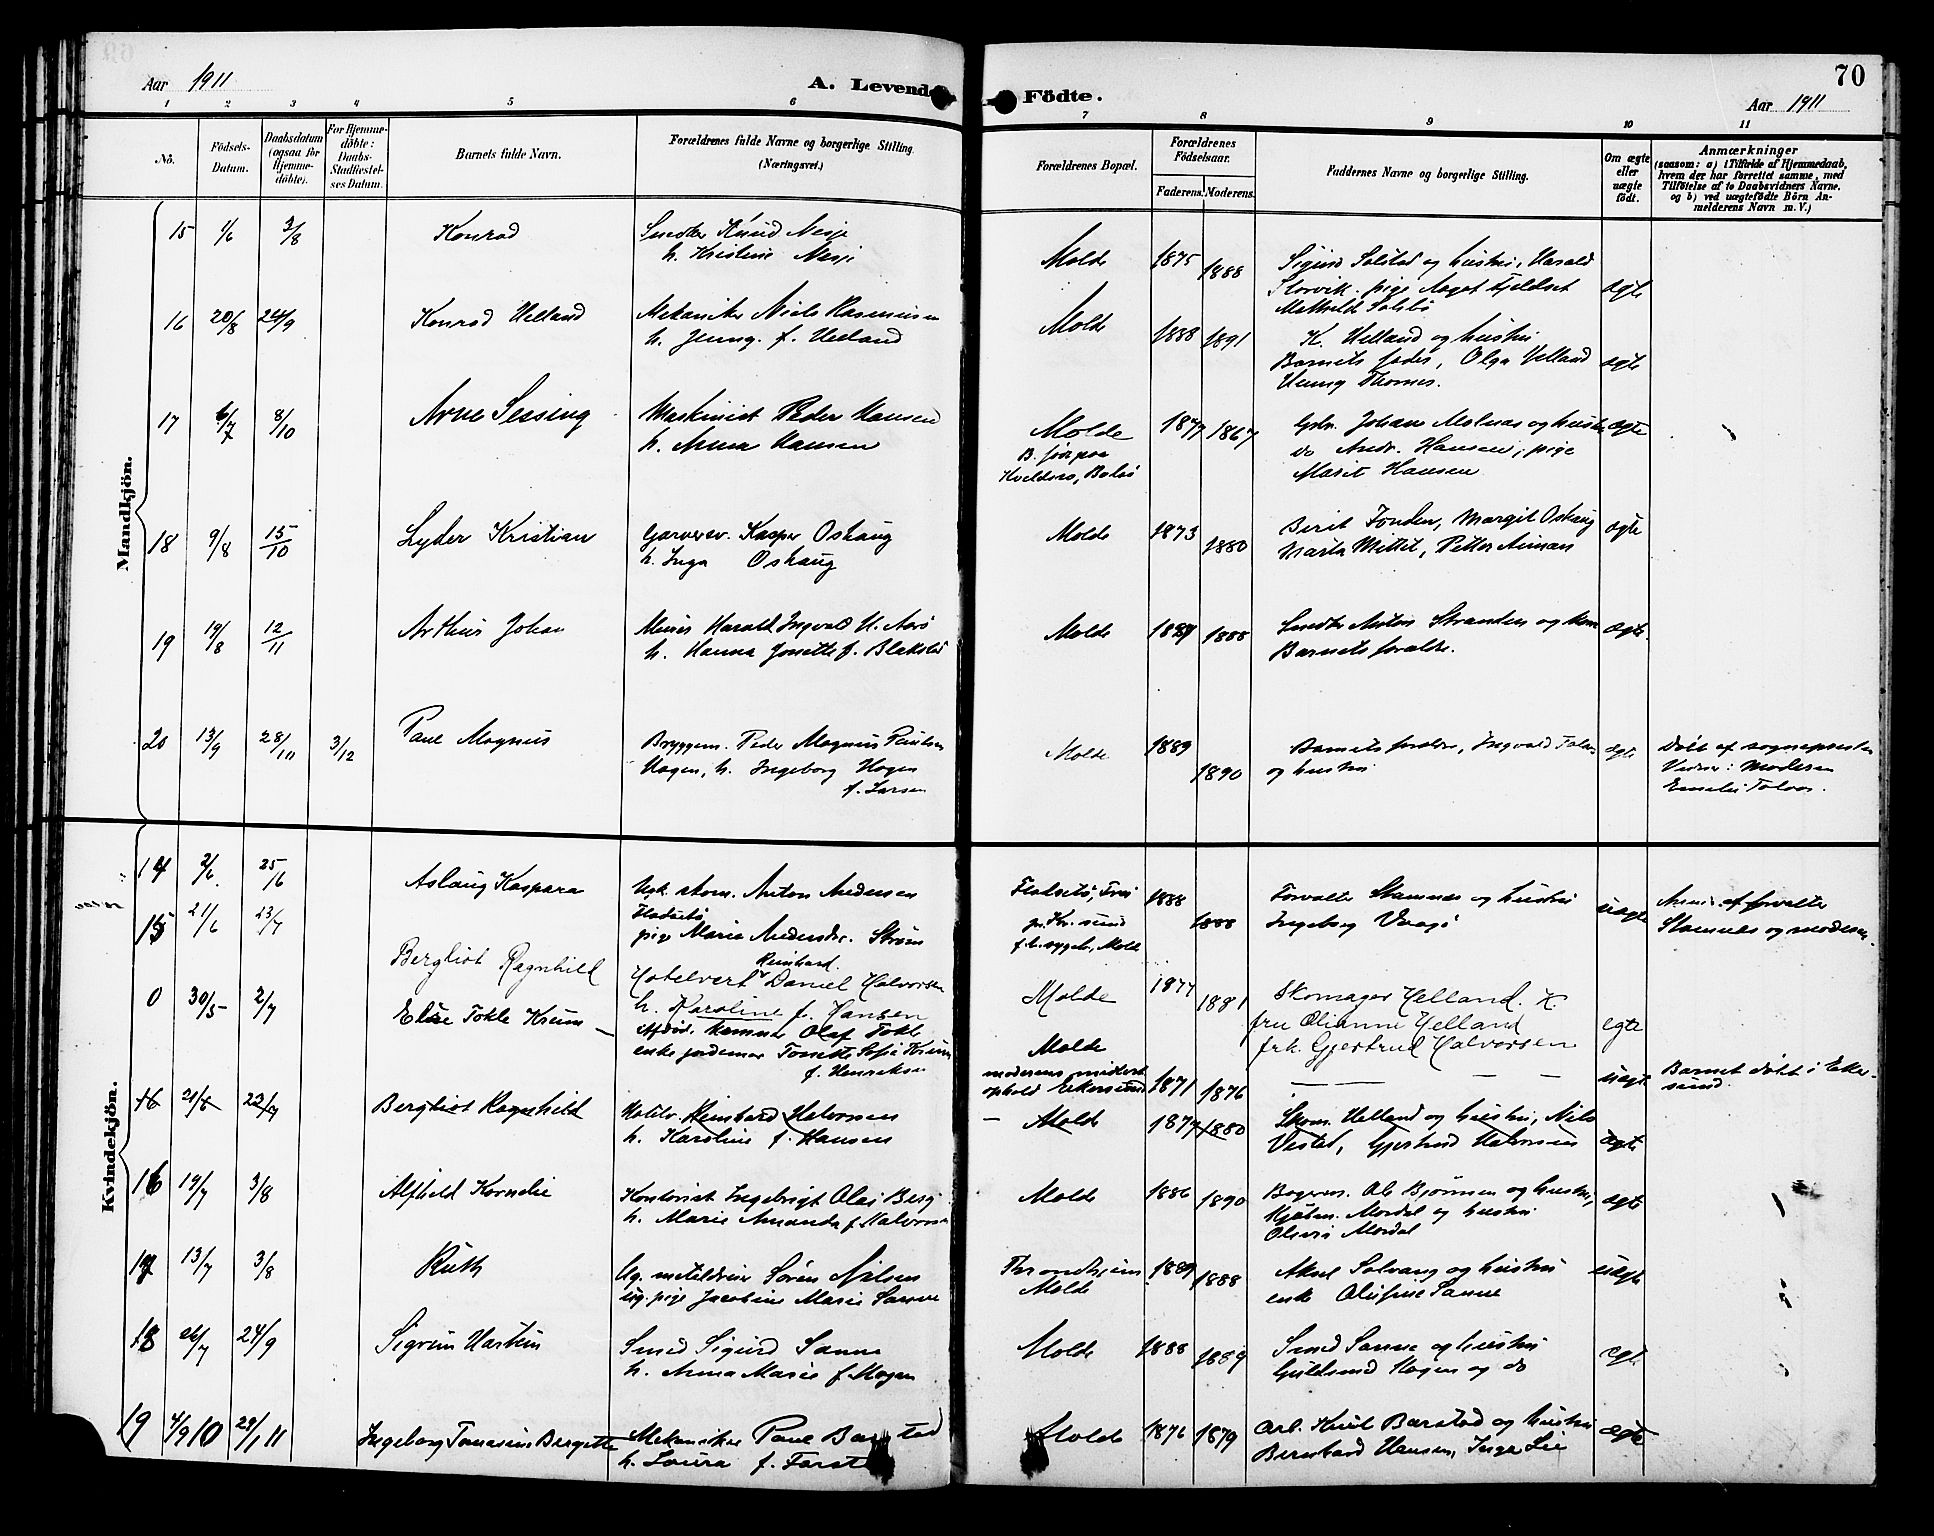 70
Aar 1911
A. Levende Födte.
Aar 1911
1 2 3 4 5 6 7 8 9 10 11
No. Födsels-Datum. Daabsdatum (ogsaa for Hjemmedöbte). For Hjemmedöbte: Daabs-Stadfæstelses Datum. Barnets fulde Navn. Forældrenes fulde Navne og borgerlige Stilling. (Næringsvei.) Forældrenes Bopæl. Forældrenes Födselsaar. Faderens. Moderens. Faddernes Navne og borgerlige Stilling. Om ægte eller uægte födt. Anmærkninger (saasom: a) i Tilfælde af Hjemmedaab, hvem der har forrettet samme, med Tilföielse af to Daabsvidners Navne. og b) ved uægtefödte Börn Anmelderens Navn m. V.)
Mandkjön.
15 1/6 3/8 Konrad Knud Nesje Molde 1875 1888 Sigurd Solstad og hustru, Harald
h. Kristine Nesje Storvik. pige Aagot Fjeldset ægte
Mathilde
16 20/8 24/9 Konrad Helland Mekaniker Niels Rasmussen Molde 1888 1891 K. Helland og hustru
h. Jenny f. Helland Barnets fader, Olga Helland ægte
Henny Thornes.
17 6/7 8/10 Arne Sessing Maskinist Peder Hansen Molde 1877 1867 Johan Molnes og hustru ægte
h. Anna Hansen B. föd paa do Andr. Hansen, pige
Bolsö Marit Hansen
18 9/8 15/10 Lyder Kristian Garversv. Kasper Oshaug Molde 1873 1880 Berit Margit Oshaug ægte
h. Inga Oshaug Petter
19 19/8 12/11 Arthur Johan Murer Harald Ingvald H. Molde 1888 Anton Stranden og kone ægte
h. Hanna Jonette f. Blakstad Barnets forældre.
20 13/9 28/10 3/12 Paul Magnus Bryggem. Peder Magnus Paulsen Molde 1889 1890 Barnets forældre, Ingvald ægte Döbt af sognepresten
Hagen, h. Ingeborg Hagen og hustru Vidner: moderen
f. Larsen Emilie
Kvindekjön.
14 2/6 25/6 Aslaug Kaspara Anton Andersen Fladsetö, 1888 1888 Forvalter Stamnes og hustru uægte Anm. af forvalter
Fladsetö Kr.sund Ingeborg Stamnes og moderen.
15 21/6 23/7 pige Marie Andersdr. Strøm Molde
Bergliot Ragnhild Reinhard
Hotelvert Daniel Halvorsen Molde 1877 1881 Skomager Helland. K.
h. Karoline f. Hansen fru Olianne Helland ægte
frk. Gjertrud Halvorsen
0 30/5 2/7 Elise Tokle Krum Olaf Tokle Molde 1871 1876 — — — uægte Barnet döbt i Eker-
enke jordemor Tonette Sofie Krum moderens midlert. sund.
f. Henriksen ophold Ekersund
16 21/6 23/7 Bergliot Ragnhild Reinhard Halvorsen Molde 1877 1880 Skom. Helland og hustru, Nils ægte
h. Karoline f. Hansen Gjertrud Halvorsen
16 19/7 3/8 Alfhild Kornelie Kontorist Ingebrigt Olai Berg Molde 1886 1890 Bagerm. Ole Bjørnsen og hustru, ægte
h. Marie Amanda f. Halvorsen Kjøbm. Mordal og hustru
Mordal
17 13/7 3/8 Ruth Ug. Søren Nilsen Throndhjem 1889 1888 Aksel Solvang og hustru uægte
ug. pige Jacobine Marie Sanne Molde enke Sanne
18 26/7 24/9 Sigrun Smed Sigurd Sanne Molde 1888 1889 Smed Sanne og hustru ægte
h. Anna Marie f. Hagen Guldsmed Hagen og do
19 4/9 10 29/1 11 Ingeborg Bergitte Mekaniker Paul Molde 1876 1879 Arb. Knut Barstad og hustru ægte
h. Laura f. Bernhard Hansen, Inga Lie